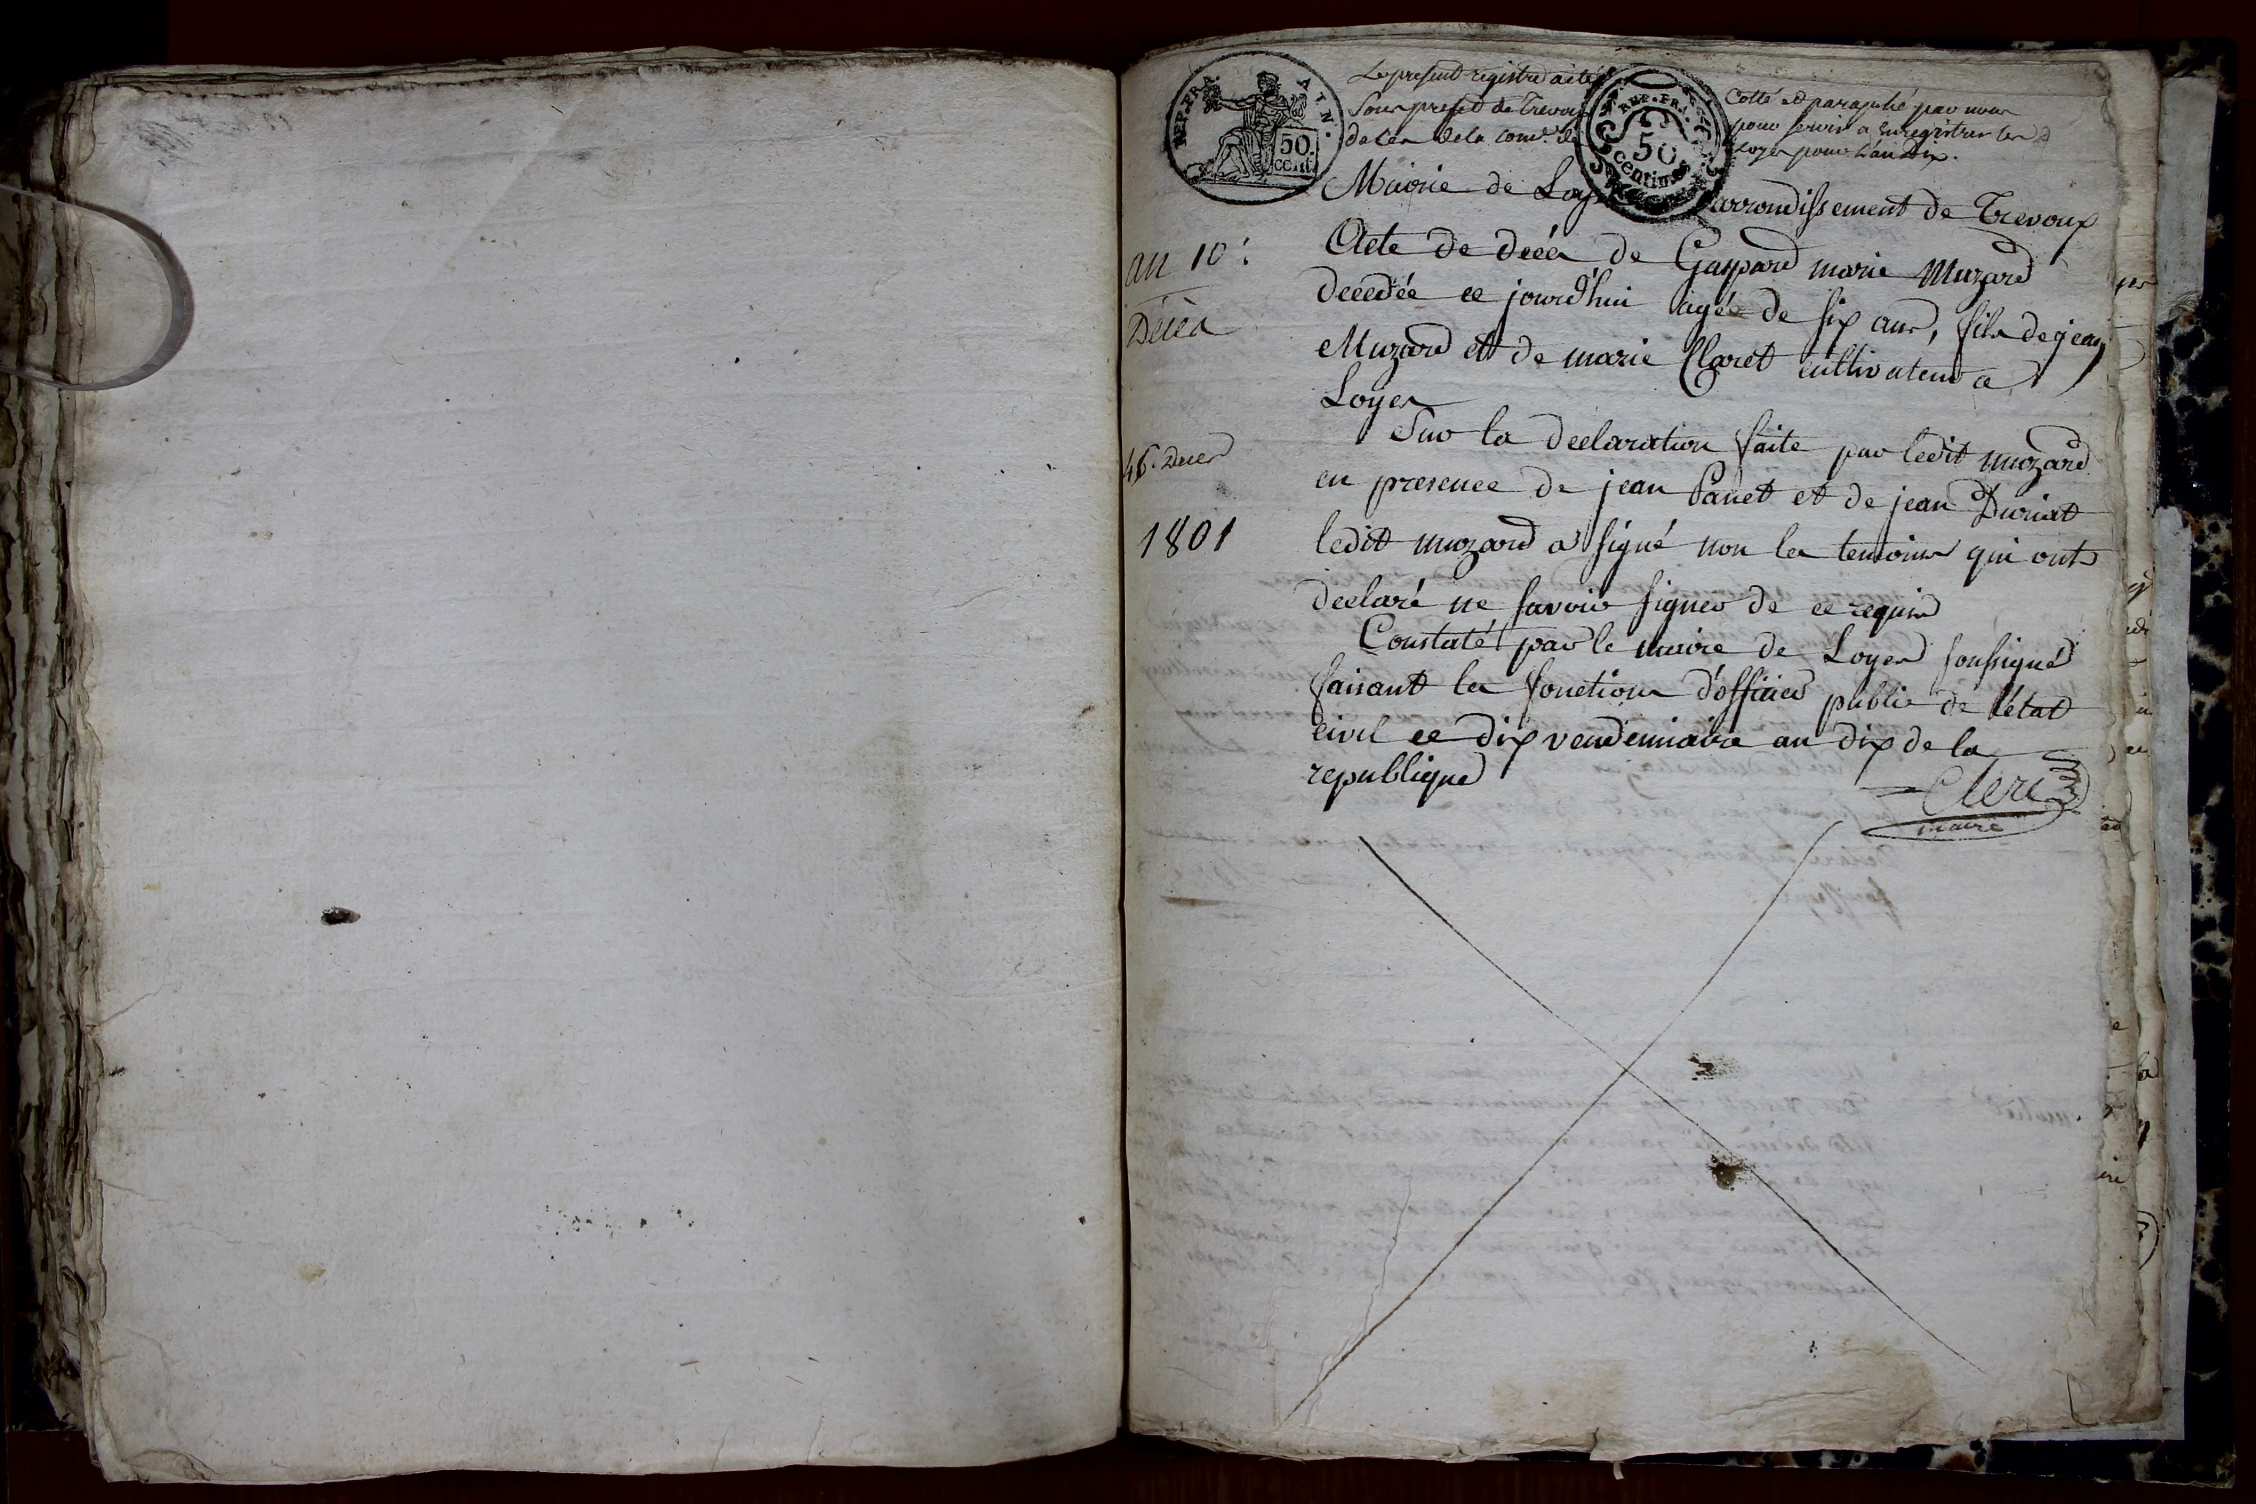 REP. FRA. A T N.
50.
cent.
REP. FRA.
50
centimes
Le present registre a été Cotté et paraphé par nous
Sous prefet de Trevoux pour servir a enregistrer les
deces de la com.e de Loyes pour l'an dix.
Mairie de Loyes arrondissement de Trevoux
an 10:
Décès
46. Décès
1801
Acte de décés de Gaspard marie Muzard
decedée ce jourd'hui agée de six ans, fils de jean
Muzard et de marie Claret cultivateur a
Loyes
Sur la declaration faite par ledit muzard
en presence de jean Panet et de jean Duriat
ledit muzard a signé non les temoins qui ont
declaré ne savoir signer de ce requis
Constaté par le maire de Loyes soussigné
faisant les fonctions d'officier public de l'état
civil ce dix vendemiaire an dix de la
republique
Clerc
maire